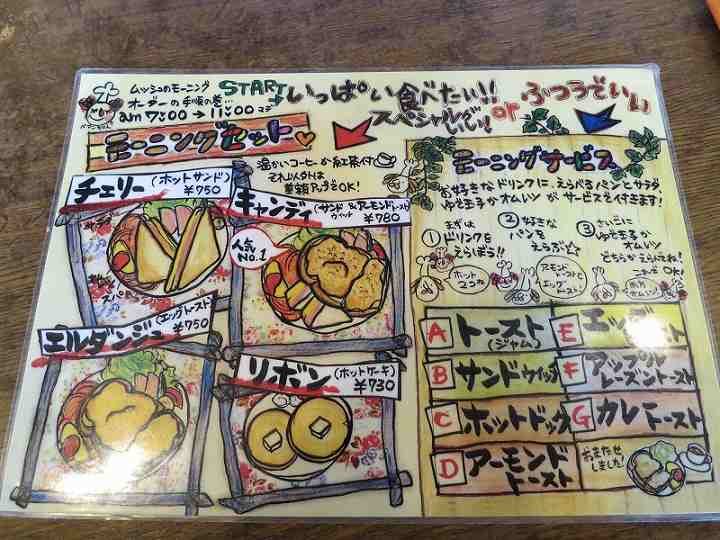 ムッシュのモーニング
オーダーの手順の巻…
am 7:00 → 11:00 マデ
START→
いっぱい食べたい!!
スペシャルがいい!!
or
ふつうでいい
モーニングセット
温かいコーヒーか紅茶付
それ以外は
OK!
チェリー(ホットサンド)
¥750
キャンディ(サンド&アーモンドトースト
¥780
人気
No.1
エルダンジュ(エッグトースト)
¥750
リボン(ホットケーキ)
¥730
モーニングサービス
お好きなドリンクに、えらべるパンとサラダ
ゆで玉子かオムレツがサービスで付きます!
①まずは
ドリンクを
えらぼう!!
ホット
②好きな
パンを
えらぶ☆
アーモンド
トーストと
エッグトースト!
③さいごに
ゆで玉子か
オムレツ
どちらかえらんでね!
OK!
A トースト
(ジャム)
B サンドウィッチ
C ホットドック
D アーモンド
トースト
E エッグ
トースト
F アップル
レーズントースト
G カレー
トースト
おまたせ
しました!